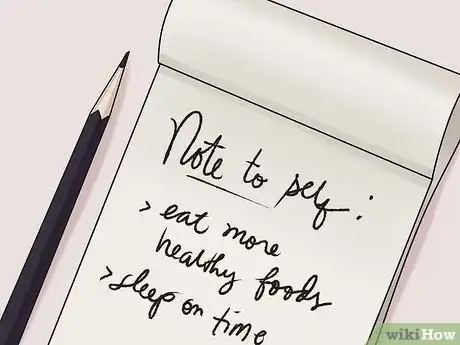 Note to self:
> eat more
healthy foods
> sleep on time
wikiHow